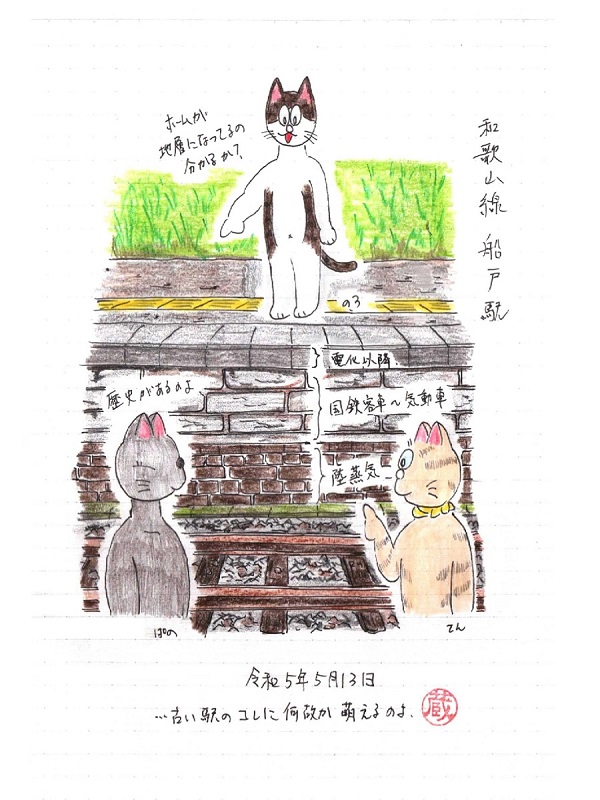 和歌山線 船戸駅
ホームが
地層になってるの
分かるかて?
のろ
電化以降.
歴史があるのよ
国鉄客車〜気動車
陸蒸気〜
ぱの
てん
令和5年5月13日
…古い駅のコレに何故か萌えるのよ.
蔵